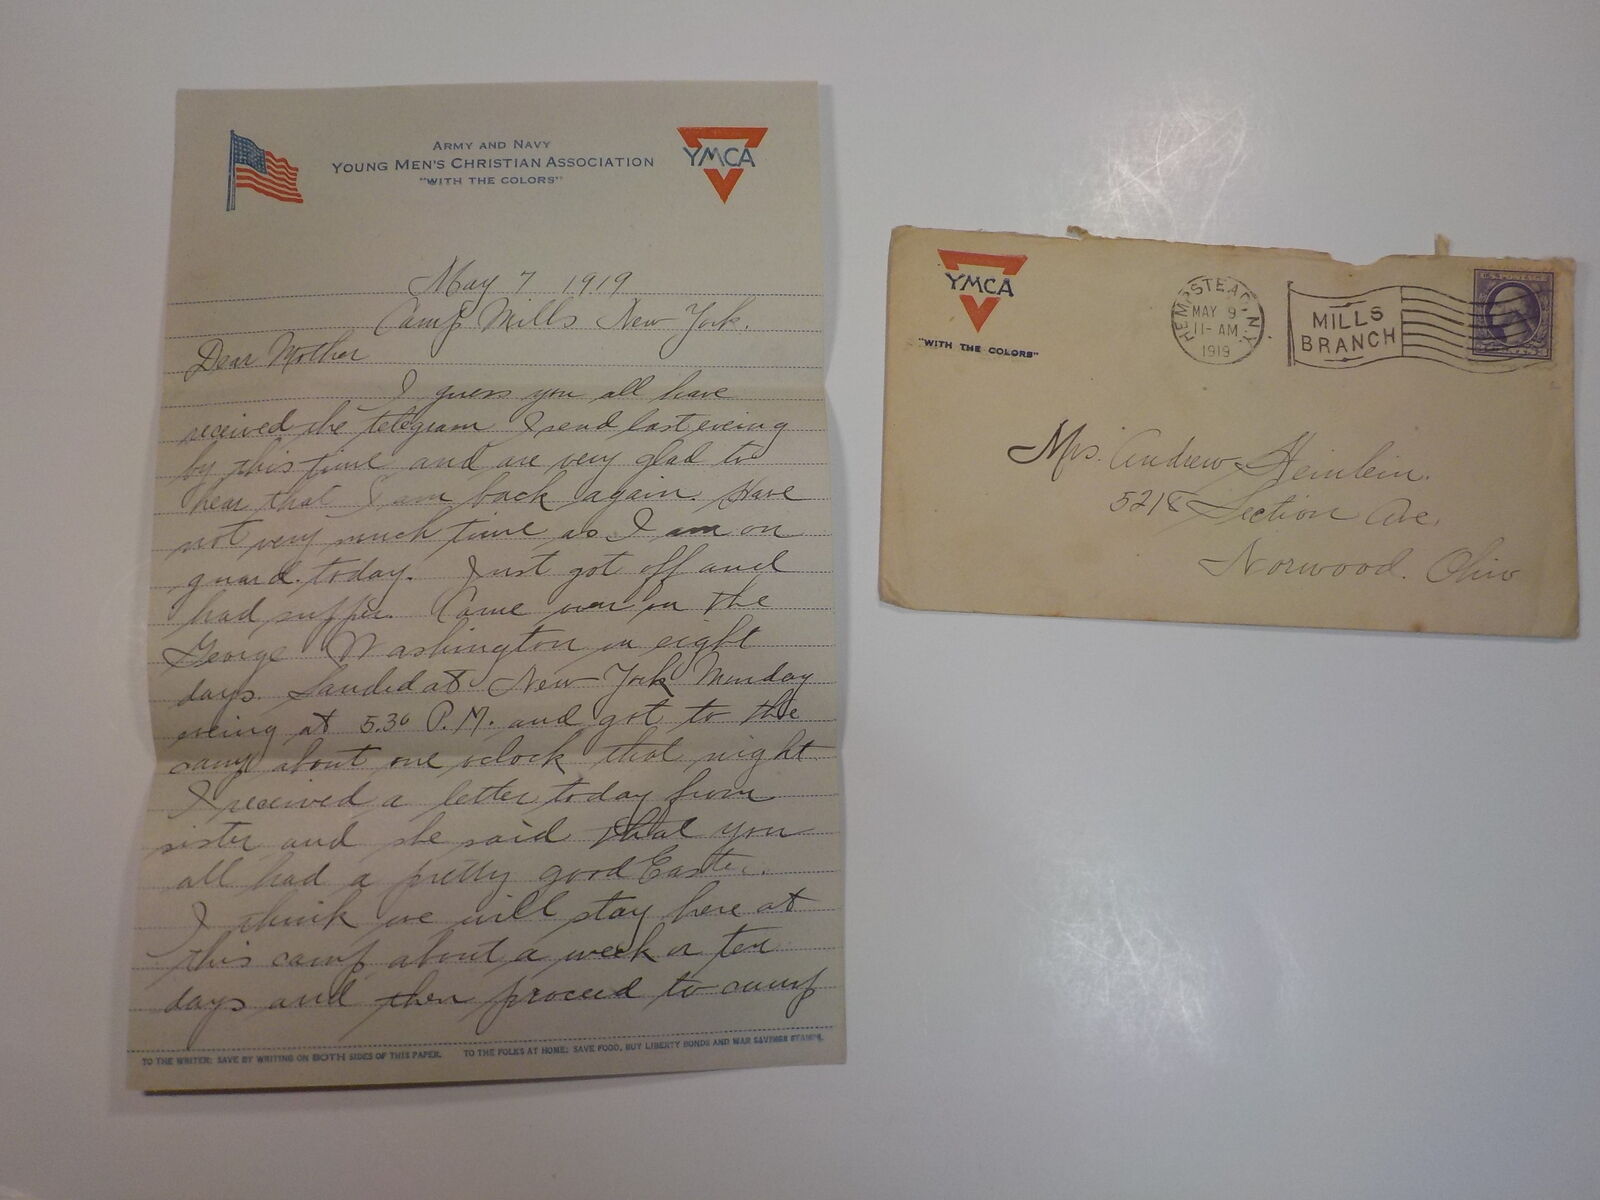 ARMY AND NAVY
YOUNG MEN'S CHRISTIAN ASSOCIATION
"WITH THE COLORS"
YMCA
May 7 1919
Camp Mills New York.
Dear Mother
I guess you all have
received the telegram I send last eveing
by this time and are very glad to
hear that I am back again. Have
not very much time as I am on
guard today. Just got off and
had supper. Came over on the
George Washington in eight
days. Landed at New York Monday
eveing at 5.30 P.M. and got to the
camp about one oclock that night.
I received a letter today from
sister and she said that you
all had a pretty good Easter.
I think we will stay here at
this camp about a week or ten
days and then proceed to camp
TO THE WRITER: SAVE BY WRITING ON BOTH SIDES OF THIS PAPER. TO THE FOLKS AT HOME: SAVE FOOD, BUY LIBERTY BONDS AND WAR SAVINGS STAMPS.
YMCA
"WITH THE COLORS"
HEMPSTEAD, N.Y.
MAY 9
11-AM
1919
MILLS
BRANCH
Mrs. Andrew Heinlein.
5218 Section Ave.
Norwood. Ohio